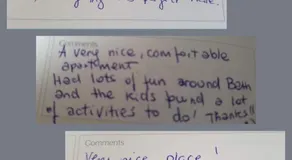 Comments
A very nice, comfortable
apartment
Had lots of fun around Bohn
and the kids found a lot
of activities to do! Thanks!!
Comments
Very nice place!